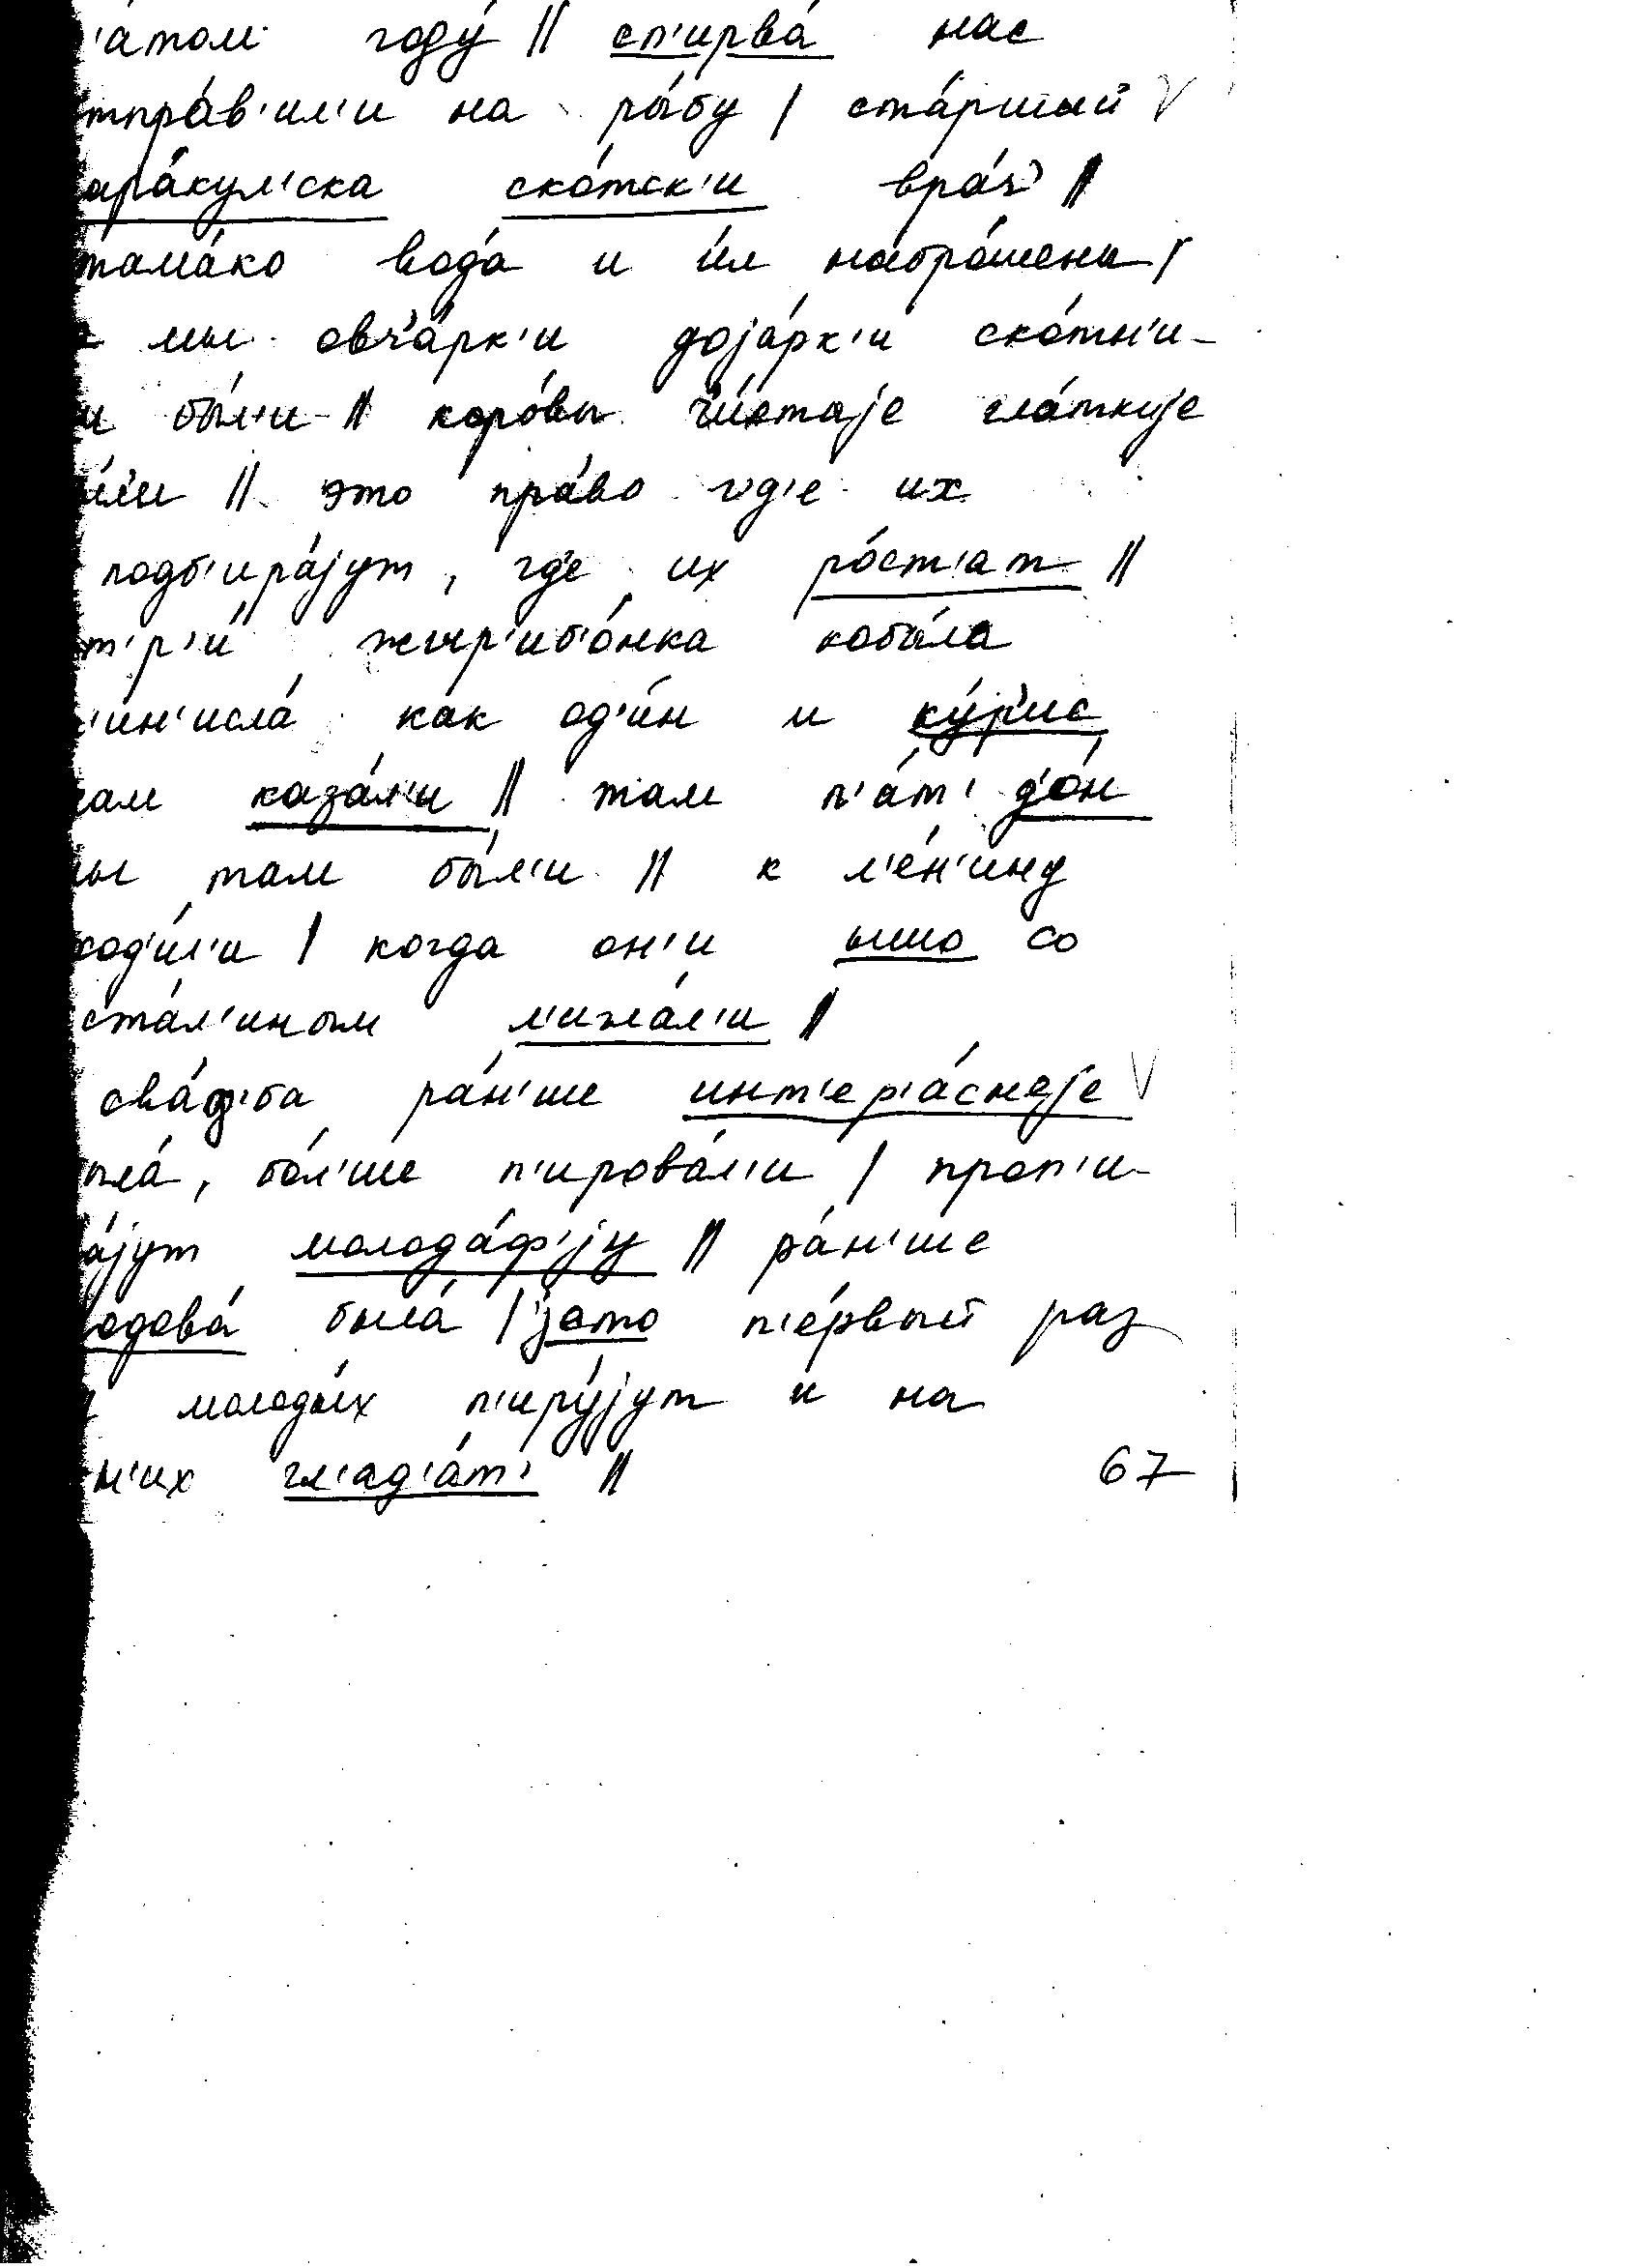 'а́том году́ || сп'ирва́ нас
тпра́в'ил'и на ры́бу | ста́ршый
ара́кул'ска ско́тск'и вра́ч' ||
тама́ко вода́ и и́л набро́шены |
мы овч'а́рк'и доjа́рк'и ско́тн'и-
и бы́л'и || коро́вы ч'и́стаjе гла́ткиjе
|| это пра́во гд'е их
подб'ира́jут, гд'е их ро́ст'ат ||
т'р'и жыр'иб'о́нка кобы́ла
'ин'исла́ как од'и́н и ку́р'ис
ам каза́л'и || там п'а́т' д'о́н
ы там бы́л'и || к л'е́н'ину
ход'и́л'и | когда он'и ышо со
ста́л'иным л'ижа́л'и ||
сва́д'ба ра́н'ше инт'ер'а́снеjе
ла́, бо́л'ше п'ирова́л'и | проп'и-
а́jут молода́ф'jу || ра́н'ше
одова́ была́ | jето п'е́рвый раз
молоды́х п'иру́jут и на
н'их гл'ад'а́т' ||
67